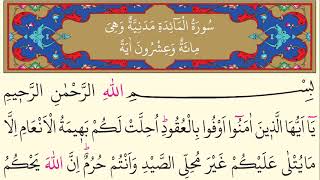 سُورَةُ الْمَائِدَةِ مَدَنِيَّةٌ وَهِيَ
مِائَةٌ وَعِشْرُونَ اٰيَةً
بِسْمِ اللهِ الرَّحْمٰنِ الرَّح۪يمِ
يَٓا اَيُّهَا الَّذ۪ينَ اٰمَنُٓوا اَوْفُوا بِالْعُقُودِۜ اُحِلَّتْ لَكُمْ بَه۪يمَةُ الْاَنْعَامِ اِلَّا
مَا يُتْلٰى عَلَيْكُمْ غَيْرَ مُحِلِّي الصَّيْدِ وَاَنْتُمْ حُرُمٌۜ اِنَّ اللهَ يَحْكُمُ